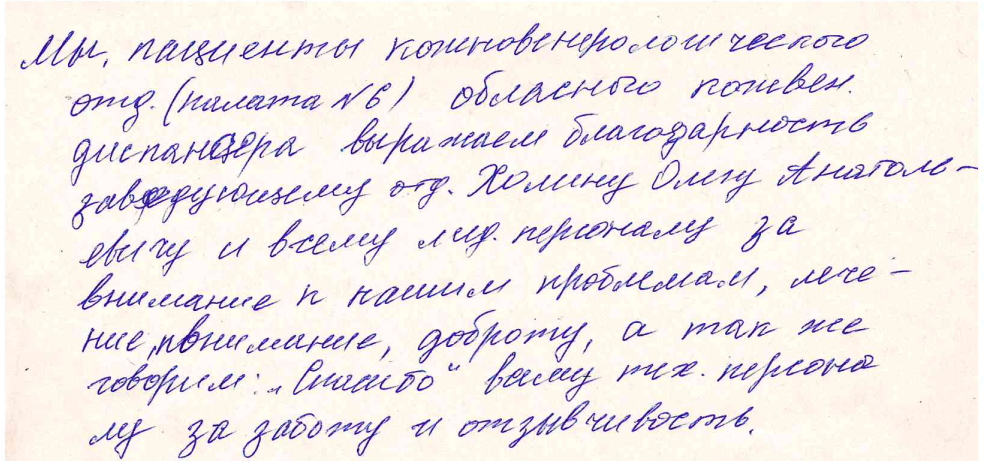 Мы, пациенты кожновенерологического
отд. (палата №6) обласного кожвен.
диспансера выражаем благодарность
заведующему отд. Холину Олегу Анатоль-
евичу и всему мед. персоналу за
внимание к нашим проблемам, лече-
ние, внимание, доброту, а так же
говорим: „Спасибо“ всему тех. персона
лу за заботу и отзывчивость.